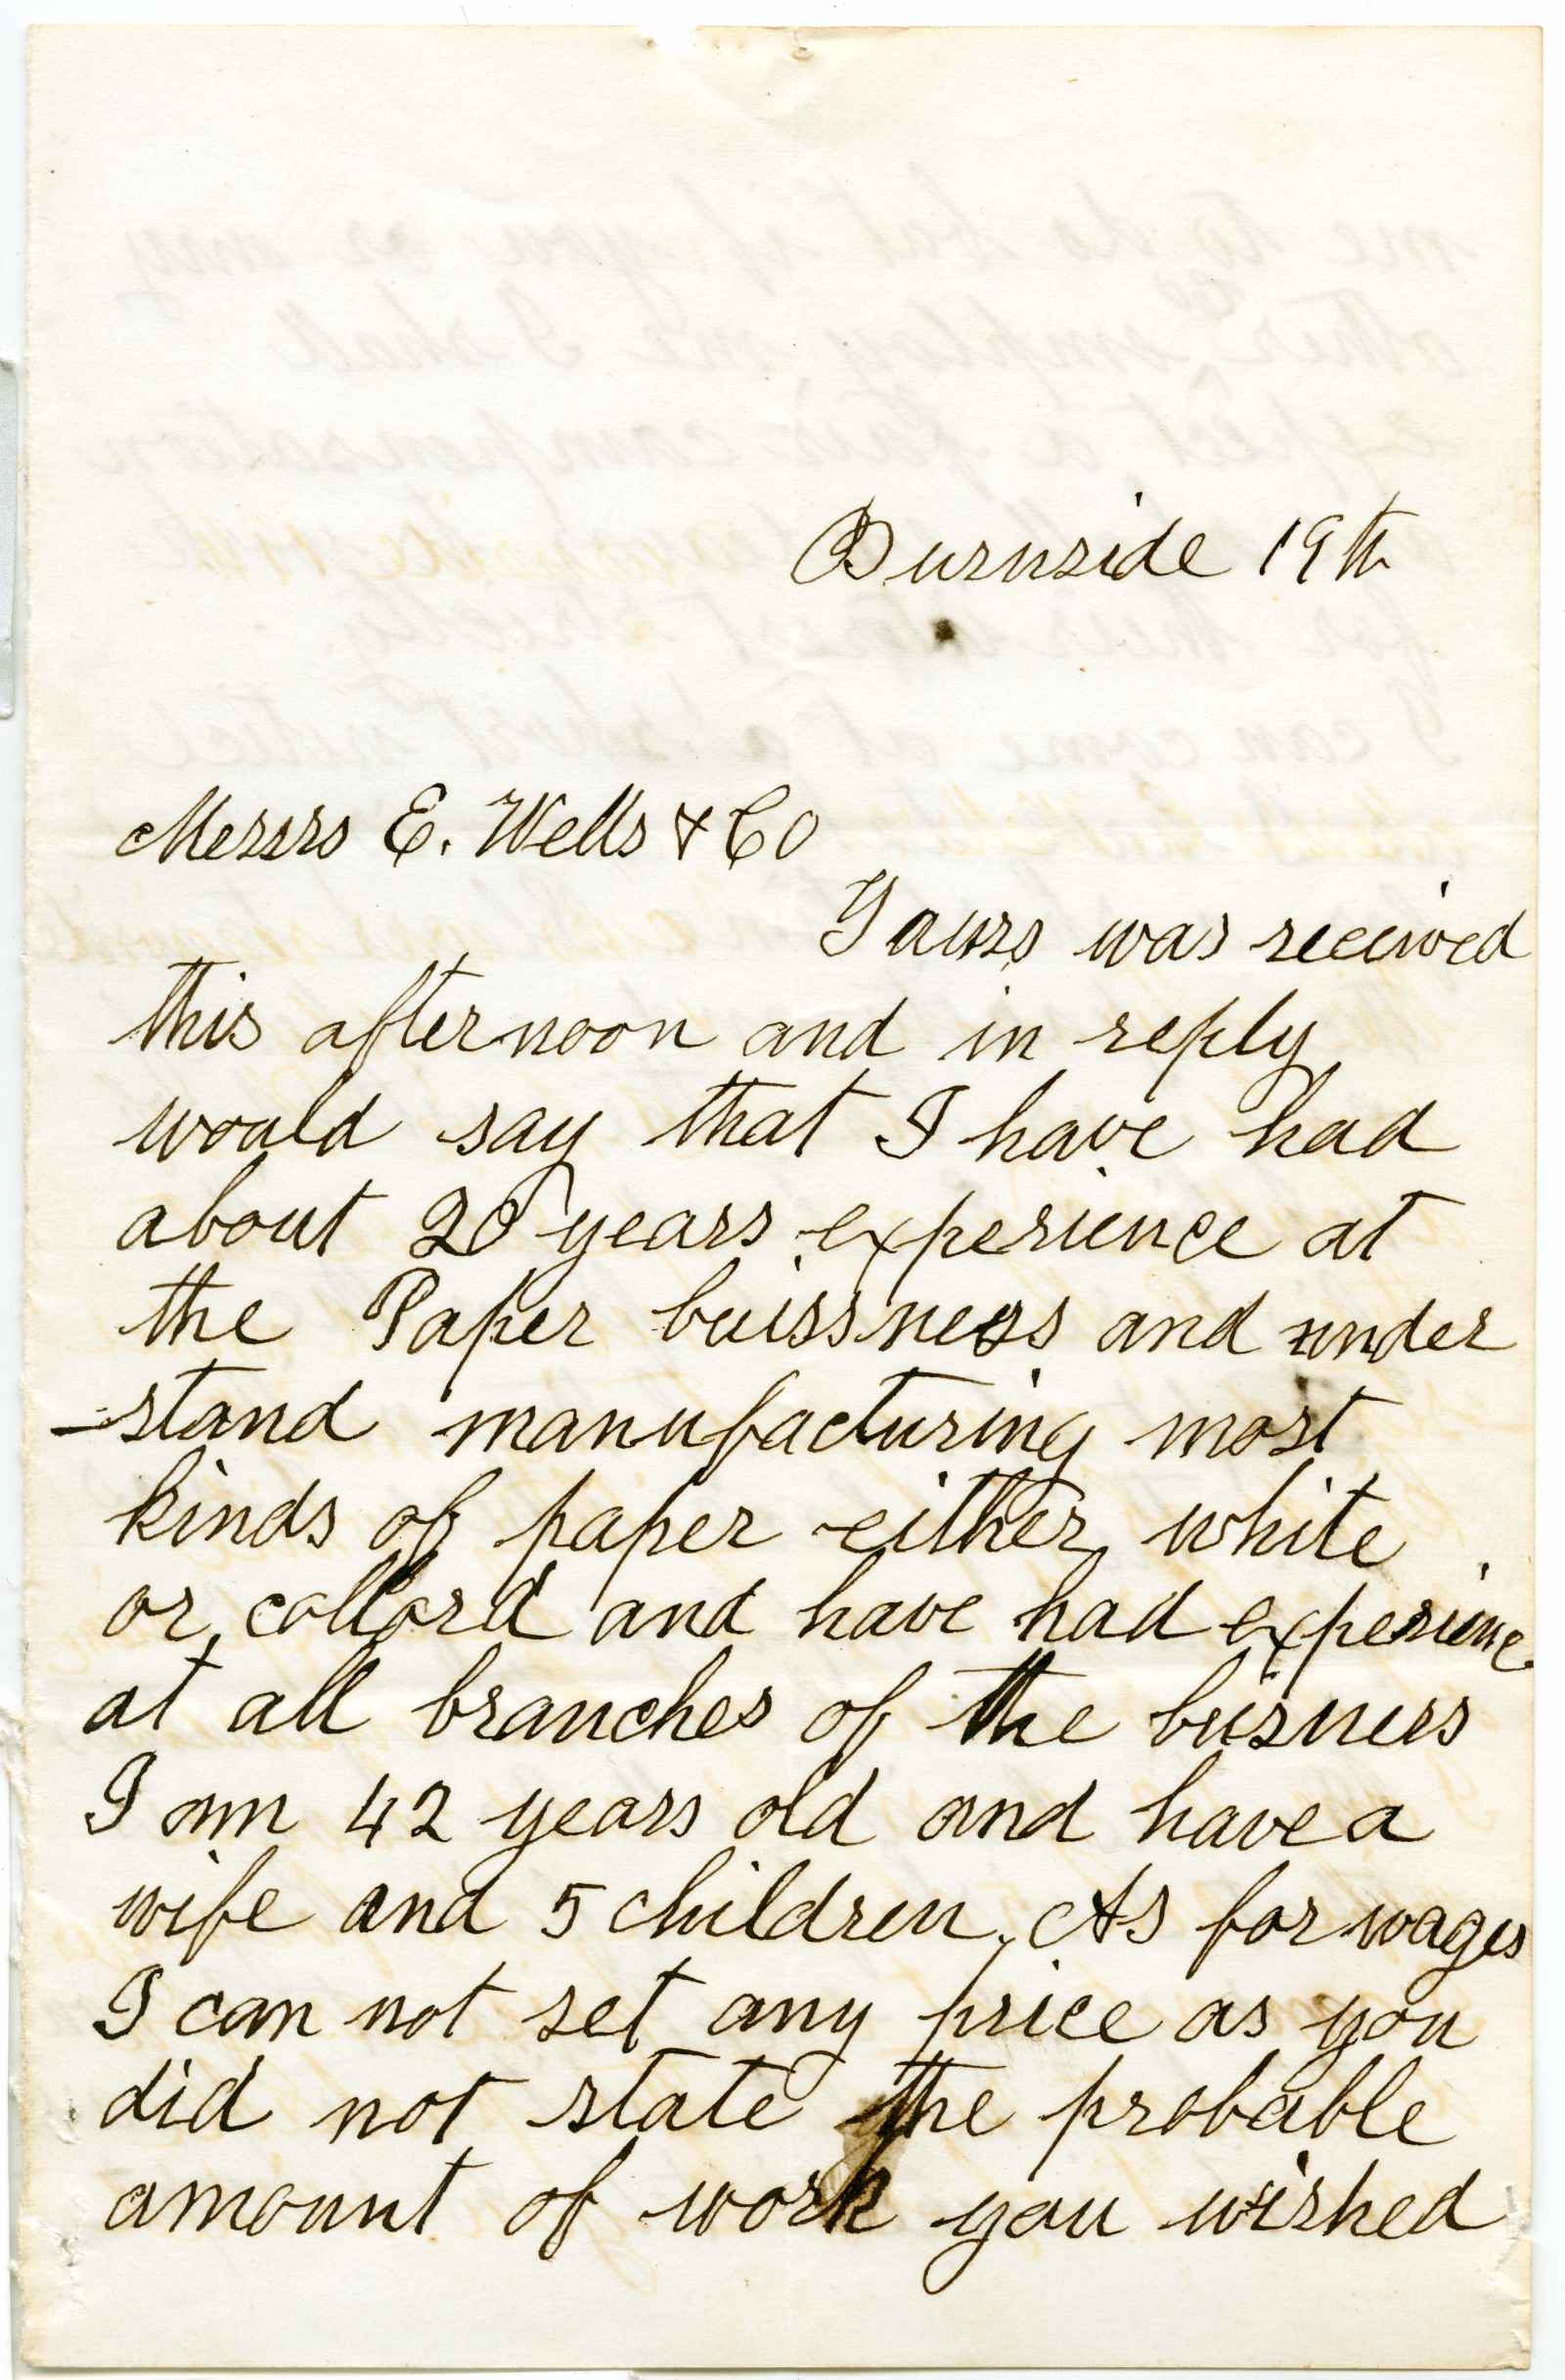 Burnside 19th
Messrs E. Wells & Co
Yours was received
this afternoon and in reply
would say that I have had
about 20 years experience at
the Paper buissness and under
-stand manufacturing most
kinds of paper either white
or collord and have had experience
at all branches of the buisness
I am 42 years old and have a
wife and 5 children. As for wages
I can not set any price as you
did not state the probable
amount of work you wished